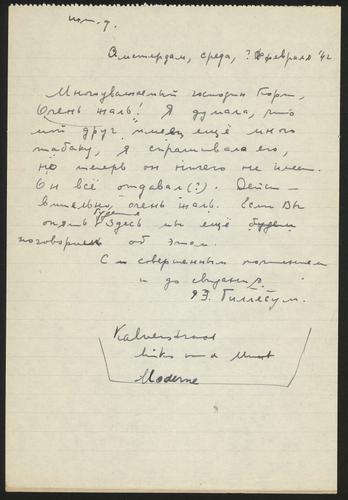 Амстердам, среда, ? февраля '42
Многоуважаемый господин Корт,
Очень жаль! Я думала, что
мой друг имеет ещё много
табаку, я спрашивала его,
но теперь он ничего не имеет.
Он всё отдавал(?). Дейст-
вительно, очень жаль. Если Вы
опять будете здесь мы ещё будем
поговорить об этом.
С совершенным почтением
и до свидания.
Э. Гиллесум.
Kalverstraat
links v.d. Munt
Moderne